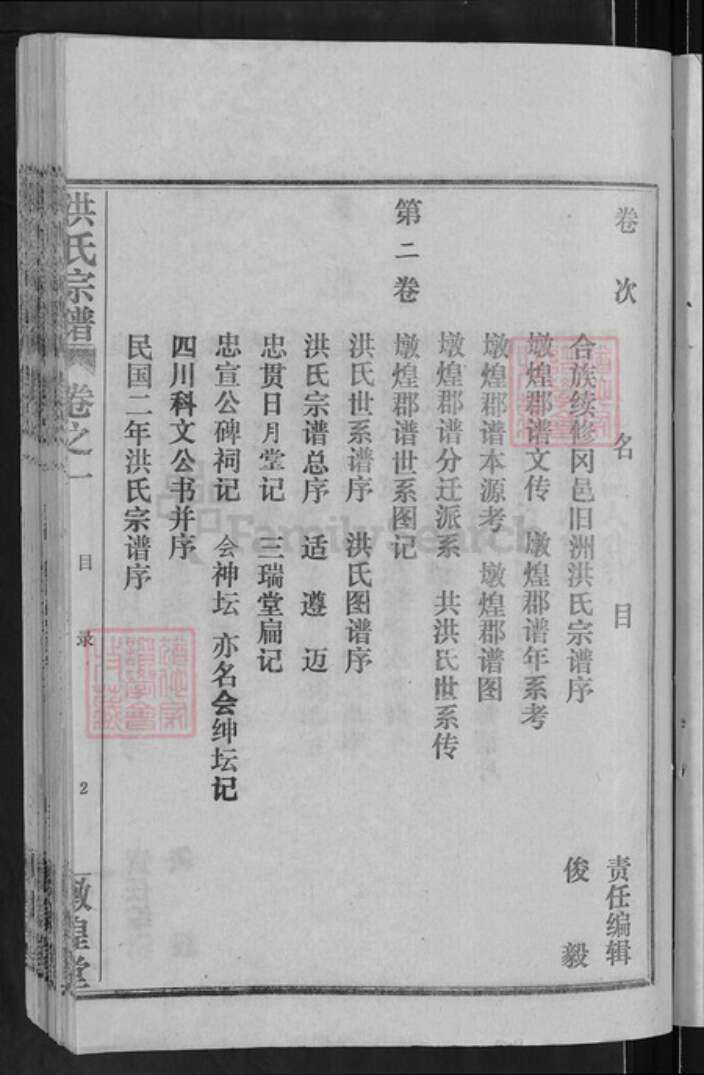 卷次 名目 责任编辑
合族续修冈邑旧洲洪氏宗谱序 俊毅
墩煌郡谱文传 墩煌郡谱年系考
墩煌郡谱本源考 墩煌郡谱图
墩煌郡谱分迁派系 共洪氏世系传
第二卷 墩煌郡谱世系图记
洪氏世系谱序 洪氏图谱序
洪氏宗谱总序 适遵迈
忠贯日月堂记 三瑞堂扁记
忠宣公碑祠记 会神坛 亦名会绅坛记
四川科文公书并序
民国二年洪氏宗谱序
洪氏宗谱 卷之一 目录 2 墩煌堂
FamilySearch